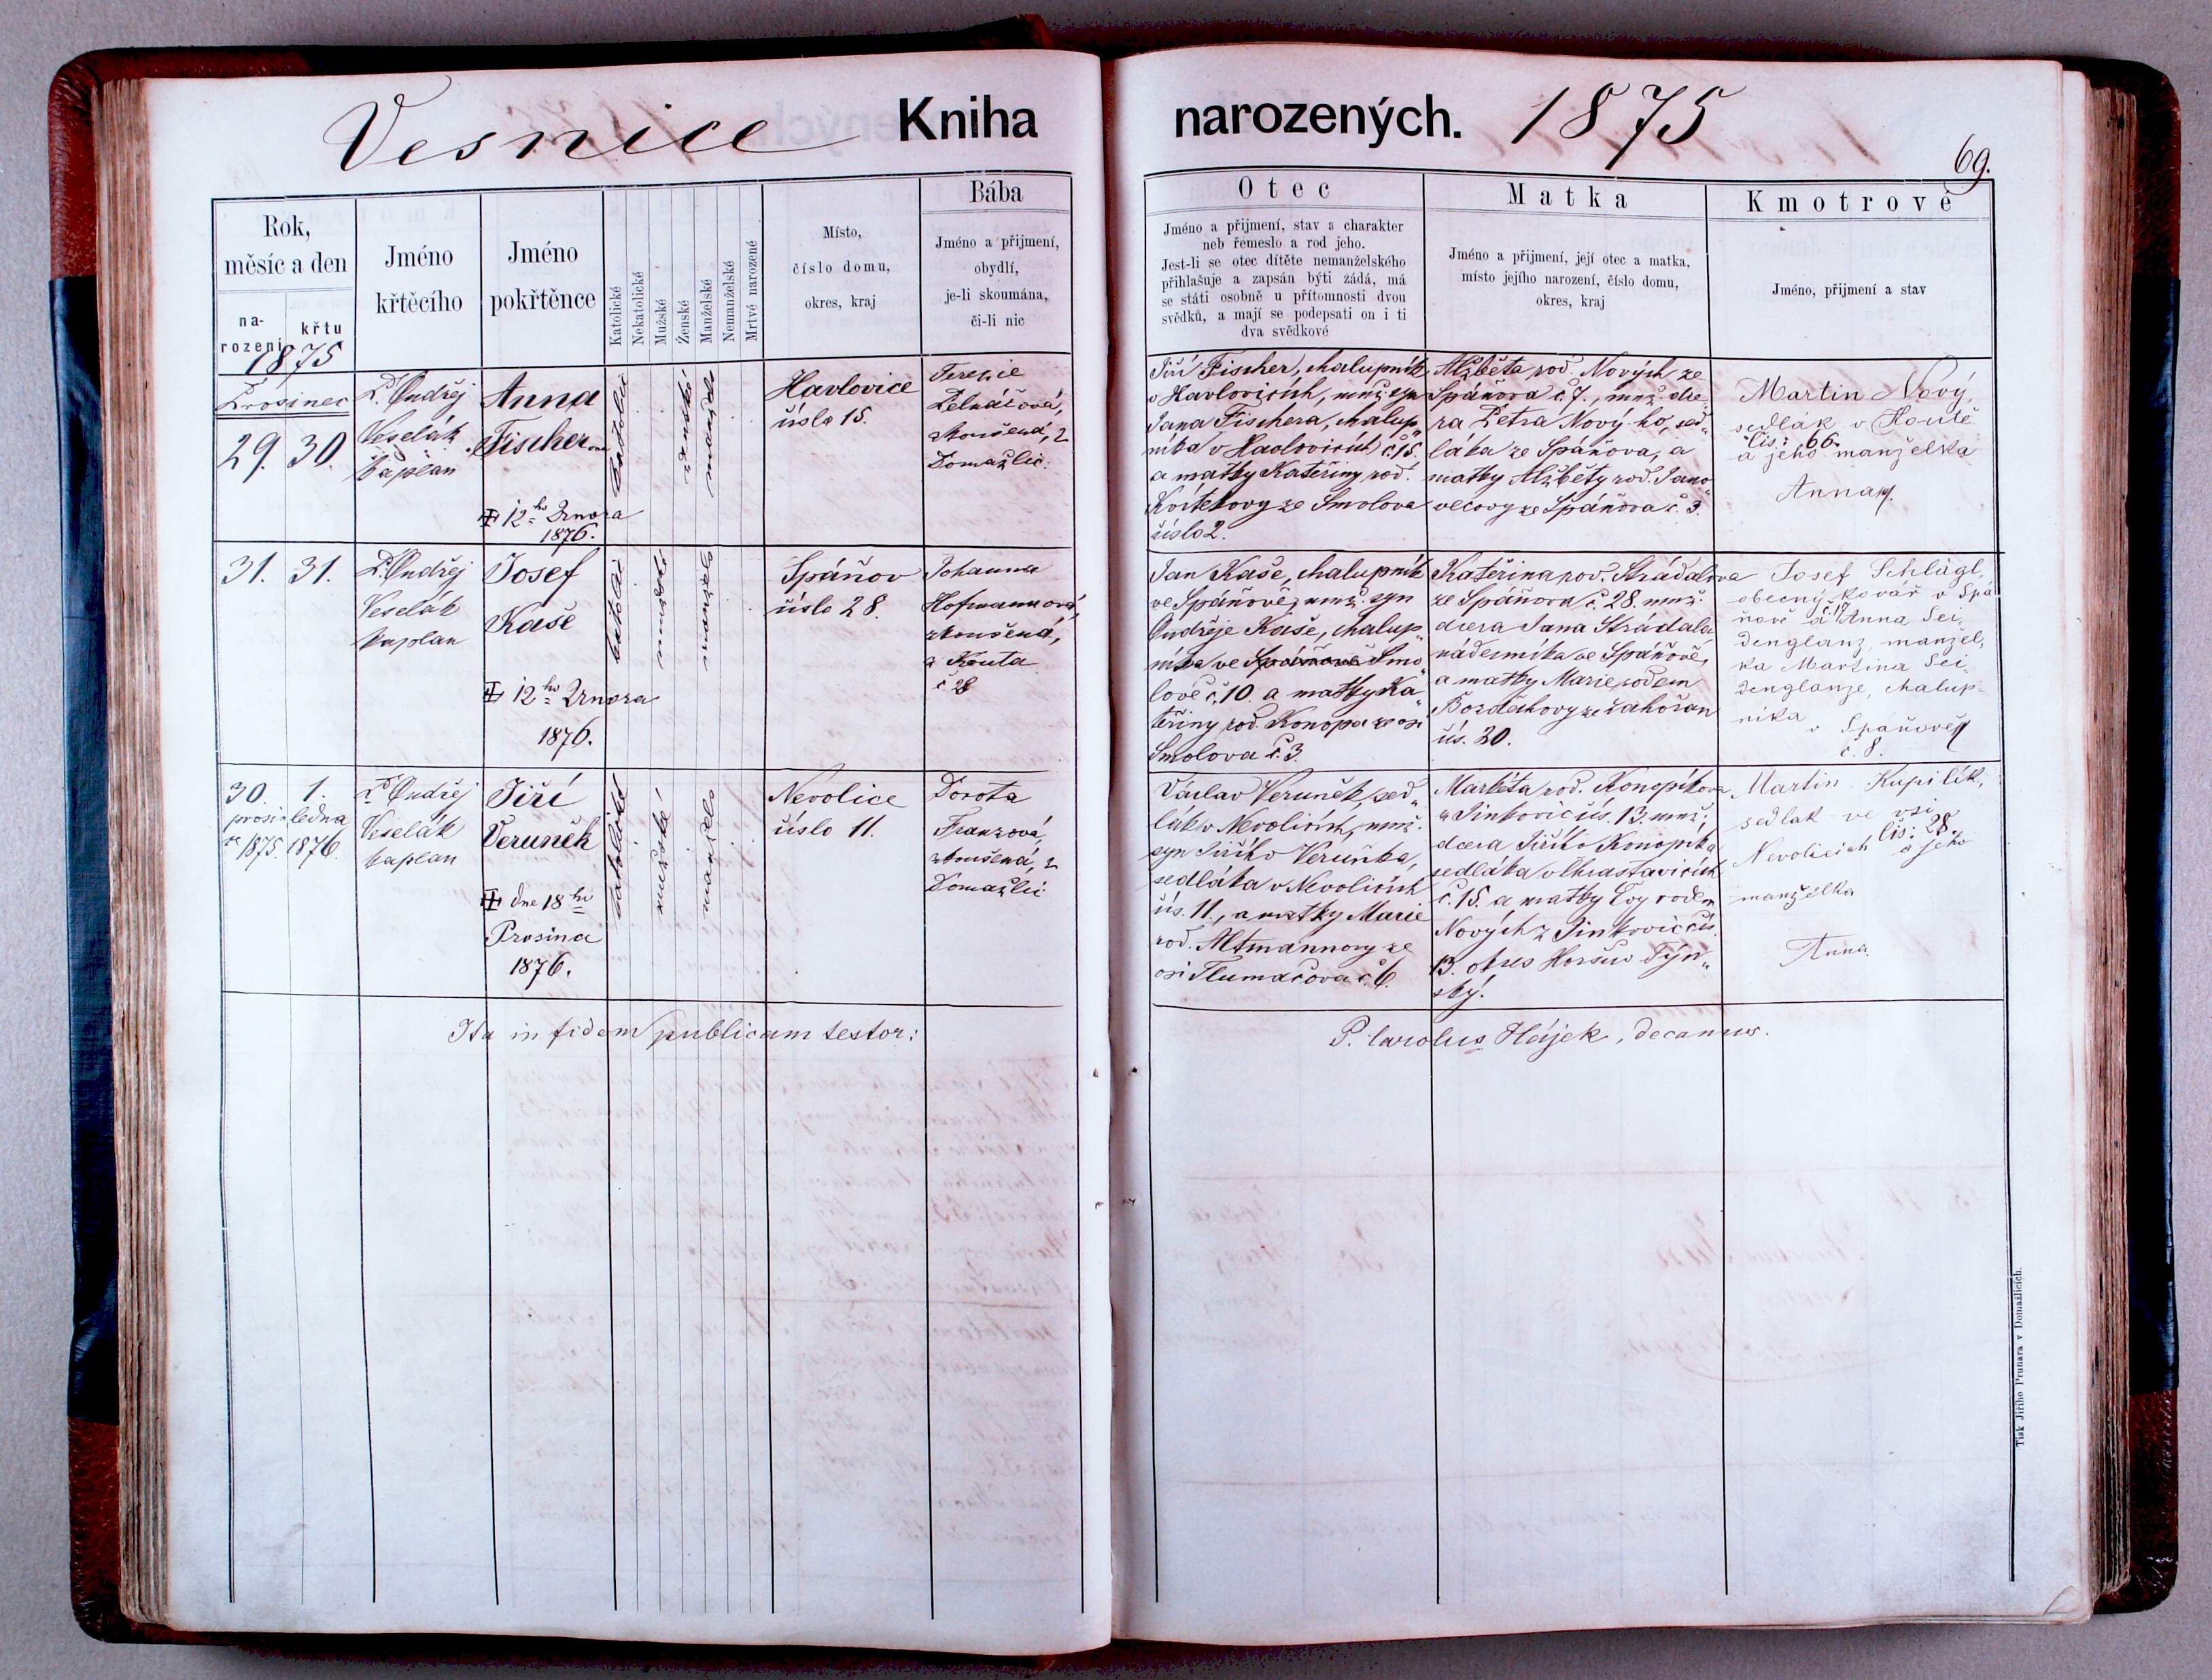 Vesnice Kniha narozených. 1875
69.
Rok,
měsíc a den
na-
rozeni
křtu
Jméno
křtěcího
Jméno
pokřtěnce
Katolické
Nekatolické
Mužské
Ženské
Manželské
Nemanželské
Mrtvě narozené
Místo,
číslo domu,
okres, kraj
Bába
Jméno a přijmení,
obydlí,
je-li skoumána,
či-li nic
Otec
Jméno a přijmení, stav a charakter
neb řemeslo a rod jeho.
Jest-li se otec dítěte nemanželského
přihlašuje a zapsán býti žádá, má
se státi osobně u přítomnosti dvou
svědků, a mají se podepsati on i ti
dva svědkové
Matka
Jméno a přijmení, její otec a matka,
místo jejího narození, číslo domu,
okres, kraj
Kmotrově
Jméno, přijmení a stav
1875
Prosinec
29. 30.
P. Ondřej
Veselák
kaplan
Anna
Fischerova
✠ 12ho Února
1876.
katolic
ženské
manžels
Havlovice
číslo 15.
Terezie
Zelnáčová,
zkoušená, z
Domažlic.
Jiří Fischer, chalupník
v Havlovicích, manž. syn
Jana Fischera, chalup„
níka v Havlovicích č. 15.
a matky Kateřiny rod.
ze Smolova
číslo 2.
Alžběta rod. Nových ze
Spáňova č. 7., manž. dce„
ra Petra Nový-ho, sed„
láka ze Spáňova, a
matky Alžběty rod. Jano„
vecovy ze Spáňova č. 3.
Martin Nový,
sedlák v Koutě
čis: 66.
a jeho manželka
Anna.
31. 31.
P. Ondřej
Veselák
kaplan
Josef
Kaše
✠ 12ho Února
1876.
katolic
mužské
manžels
Spáňov
číslo 28.
Johanna
Hofmannová,
zkoušená,
z Kouta
č 28
Jan Kaše, chalupník
ve Spáňově, manž. syn
Ondřeje Kaše, chalup„
níka ve Spáňově Smo„
lově č. 10. a matky Ka„
teřiny rod. Konopa ze vsi
Smolova č. 3.
Kateřina rod. Strádalova
ze Spáňova č. 28. manž.
dcera Jana Strádala,
nádenníka ve Spáňově,
a matky Marie rodem
Bozděkovy ze Zahořan
čís. 20.
Josef Schlägl,
obecný kovář v Spá„
ňově č. 17 a Anna Sei„
denglanz, manžel„
ka Martina Sei„
denglanze, chalup„
níka
v Spaňově
č. 8.
30.
prosin
ce 1875.
1.
ledna
1876.
P. Ondřej
Veselák
kaplan
Jiří
Veruněk
✠ dne 18ho
Prosince
1876.
katolické
mužské
manžels
Nevolice
číslo 11.
Dorota
Franzová,
zkoušená, z
Domažlic
Václav Veruněk, sed„
lák v Nevolicích, manž.
syn Jiřího Veruňka,
sedláka v Nevolicích
čís. 11., a matky Marie
rod. Altmannovy ze
vsi Tlumačova č. 6.
Markéta rod. Konopíkova
z Šinkovic čís. 13. manž.
dcera Jiřího Konopíka,
sedláka v Chrastavicích
č. 15. a matky Evy rodem
Nových z Šinkovic čís.
13. okres Horšův Týn„
ský.
Martin Kupilík,
sedlak ve vsi
Nevolicích čis: 28.
a jeho
manželka
Anna.
Ita in fidem publicam testor:
P. Carolus Hájek, decanus.
Tisk Jiřího Prunara v Domažlicích.